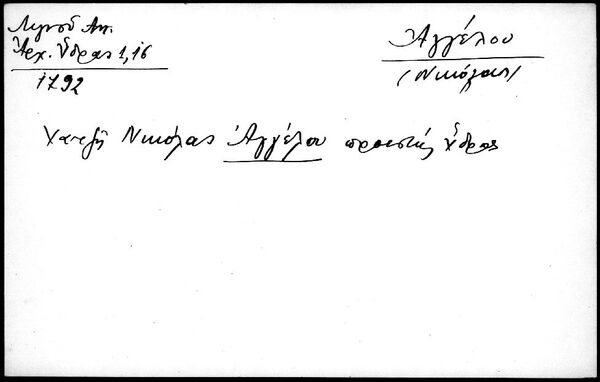 Λιγνοῦ Ἀντ.
Ἀρχ. Ὕδρας 1,16
1792
Ἀγγέλου
(Νικόλαος)
Χατζῆ Νικόλας Ἀγγέλου προεστώς Ὕδρας